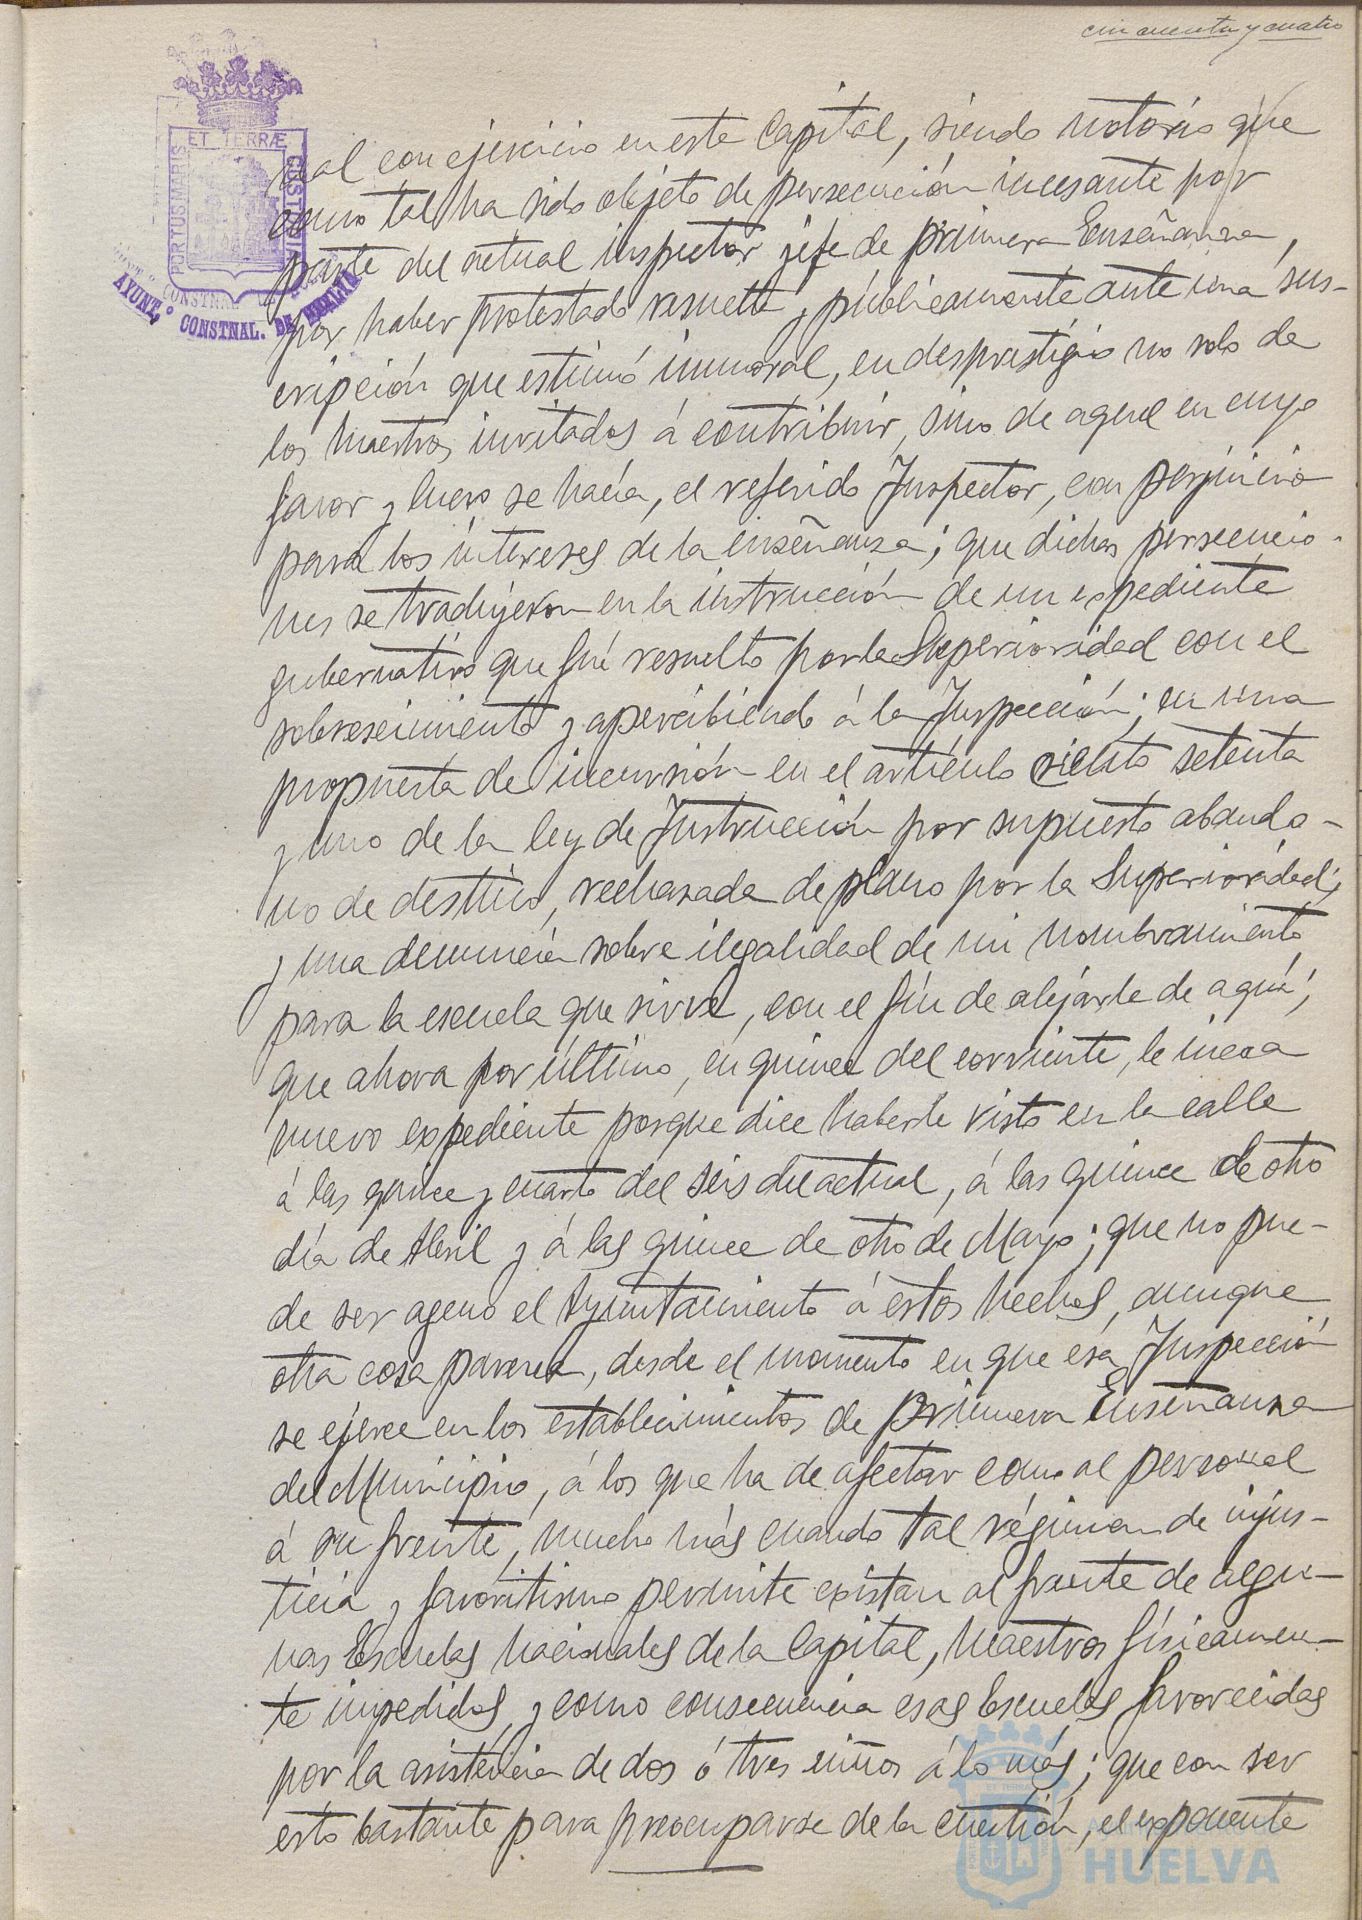 cincuenta y cuatro
ET TERRÆ
PORTUS MARIS
CUSTODIA
AYUNT.º CONSTNAL. DE HUELVA
nal con ejercicio en este Capital, siendo notorio que
como tal ha sido objeto de persecución incesante por
parte del actual inspector jefe de primera Enseñanza,
por haber protestado resuelta y públicamente ante una sus-
cripción que estimó inmoral, en desprestigio no solo de
los maestros invitados á contribuir, sino de aquel en cuyo
favor y lucro se hacía, el referido Inspector, con perjuicio
para los intereses de la enseñanza; que dichas persecucio-
nes se tradujeron en la instrucción de un expediente
gubernativo que fué resuelto por la Superioridad con el
sobreseimiento y apercibiendo á la Inspección; en una
propuesta de incursión en el artículo ciento setenta
y uno de la ley de Instrucción por supuesto abando-
no de destino, rechazada de plano por la Superioridad;
y una denuncia sobre ilegalidad de un nombramiento
para la escuela que sirve, con el fín de alejarle de aquí;
que ahora por último, en quince del corriente, le incoa
nuevo expediente porque dice haberle visto en la calle
á las quince y cuarto del seis del actual, á las quince de otro
día de Abril y á las quince de otro de Mayo; que no pue-
de ser ageno el Ayuntamiento á estos hechos, aunque
otra cosa parezca, desde el momento en que esa Inspección
se ejerce en los establecimientos de primera Enseñanza
del Municipio, á los que ha de afectar como al personal
á su frente, mucho más cuando tal régimen de injus-
ticia y favoritismo permite existan al frente de algu-
nas Escuelas nacionales de la Capital, maestros físicamen-
te impedidos, y como consecuencia esas Escuelas favorecidas
por la asistencia de dos ó tres niños á lo más; que con ser
esto bastante para preocuparse de la cuestión, el exponente
HUELVA